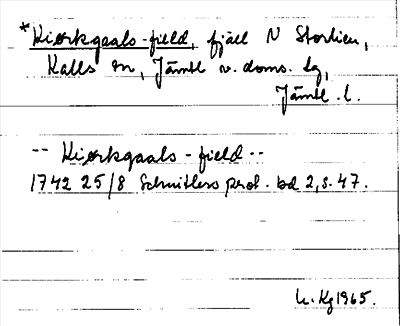 *Kiørkgaals-field, fjäll N Storlien,
Kalls sn, Jämtl v. doms. lg,
Jämtl. l.
-- Kiørkgaals - field --
1742 25/8 Schnitlers prot. bd 2, s. 47.
L. Kg 1965.